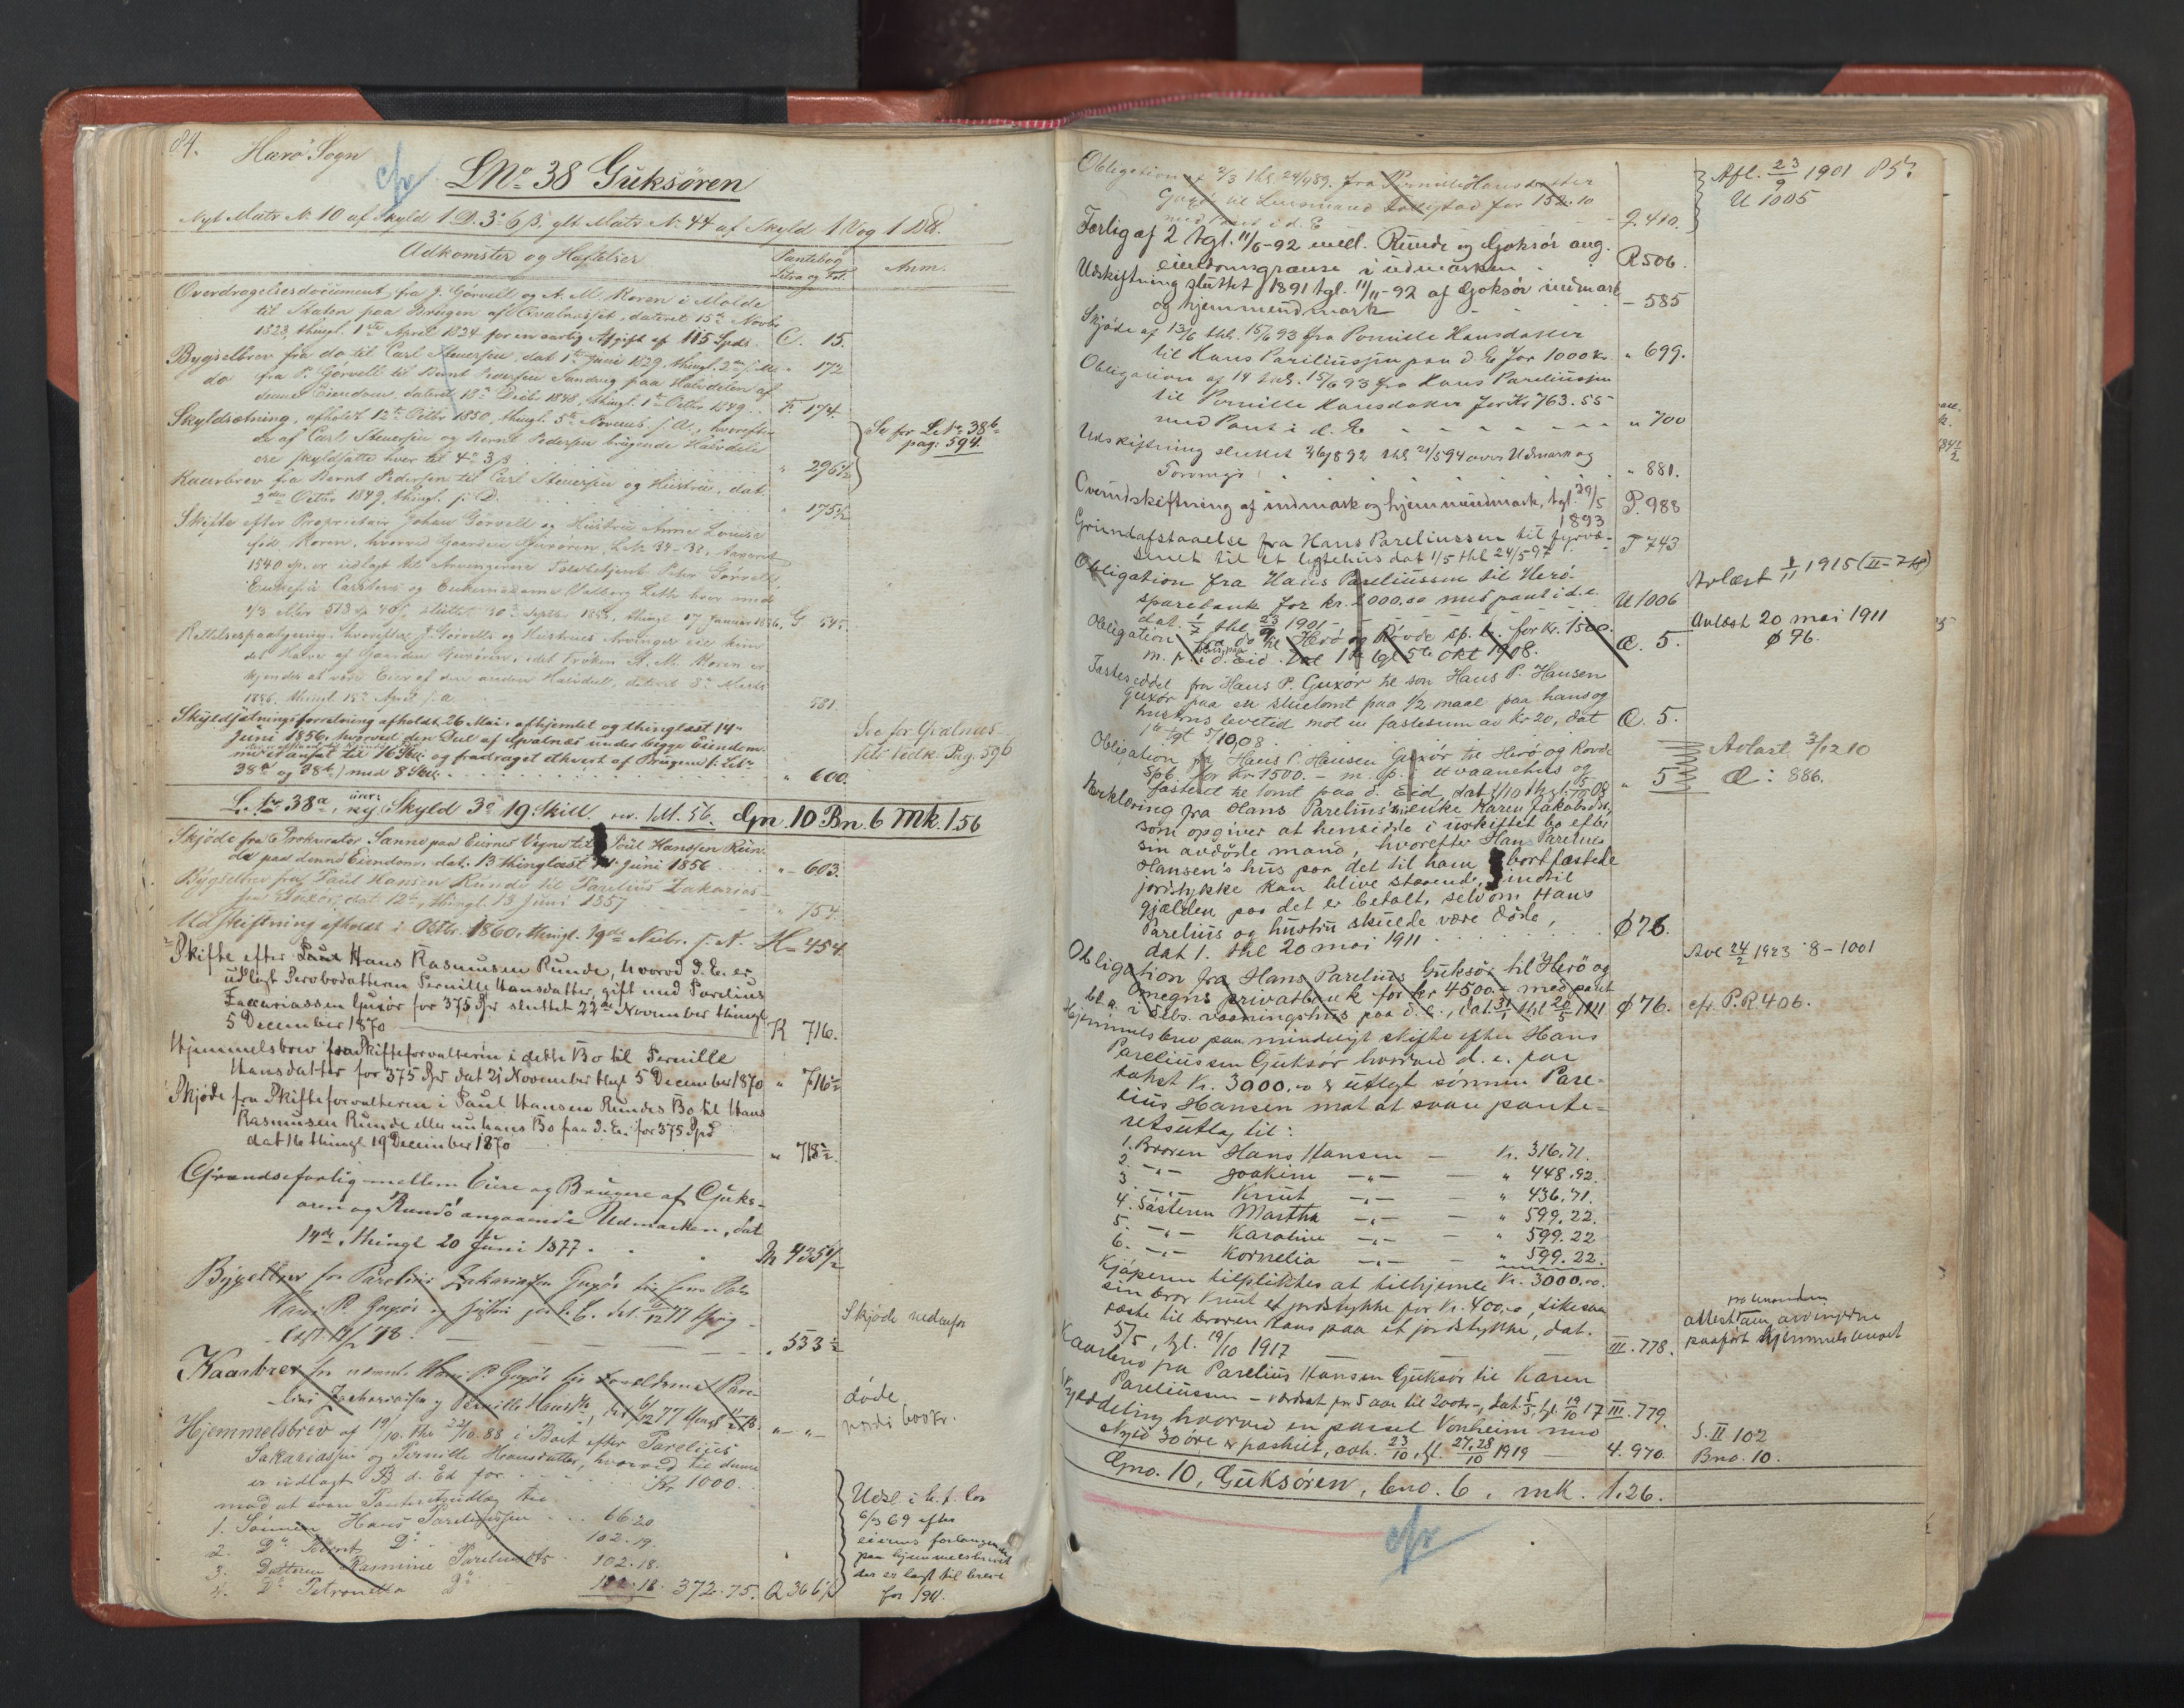 84.
Herø Sogn
cfr
LNo 38 Guksøren
Nyt Matr N. 10 af Skyld 1 D. 3 ° 6 β, glt Matr No 44 af Skyld 1 Vog
Adkomster og Heftelser Pantebog Litra og Fol. Anm.
Overdragelsesdocument fra J. Görvell og A. M. Koren i Molde
til Staten paa Brugen af Qvalnæsset, dateret 15de Novbr
1823, thingl. 1ste April 1824 for en aarlig Afgift af 115 Spd. C. 15.
Bygselbrev fra do til Carl Steuersen, dat 1ste Juni 1829, thingl. 2den 172
do fra P. Görvell til Bernt Pedersen Sandvig paa Halvdelen af
denne Eiendom, dateret 18de 1848, thingl. 1ste Octbr 1849 F. 174.
Skyldsætning, afholdt 12te Octbr 1850, thingl. 5te Novemb. s. A., hvorefter
de af Carl Steuersen og Bernt Pedersen brugende Halvdele
ere skyldsatte hver til 4 ° 3 β " 296½
Se for L. No 38b
pag: 594.
Kaarbrev fra Bernt Pedersen til Carl Steuersen og Hustru, dat.
2den Octbr 1849, thingl. s. D. " 175½
Skifte efter Proprietair Johan Görvell og Hustru Anne Lovise
fød Koren, hvorved Gaarden Guxøren, L. No 34-38, taxeret
1540 Sp. er udlagt til Arvingerne Toldbetjent Peter Görvell,
1/3 eller 513 sluttet 30te Septbr thingl. 17 Januar 1856. G. 545.
Rettelsespaategning, hvorefter J. Görvells og Hustrues Arvinger eie kun
det Halve af Gaarden Guxøren, idet Frøken A. M. Koren er
kjendes at være Eier af den anden Halvdeel, dateret 8de Marts
1856, thingl. 15de April s. a. 581.
Skyldsætningsforretning afholdt 26 Mai, afhjemlet og thinglæst 14
Juni 1856, hvorved den Deel af Qvalnæs under begge Eiendom-
me er ansat til 16 Skil. og fradraget ethvert af Brugene (: Litr
38a og 38b) med 8 Skil. " 600.
Se for Qvalnæs
Pag. 596
L. No 38a, ny Skyld 3 ° 19 Skill. rev. M. 56. Gn. 10 Bn. 6 Mk. 1.56
Skjøde fra Prokurator Sanne paa Eiernes Vegne til Poul Hanssen Run-
de paa denne Eiendom, dat. 13 thinglæst 14 Juni 1856 " 603.
Bygselbrev fra Paul Hansen Runde til Parelius Zakarias-
sen Guxør, dat. 12te, thingl. 13 Juni 1857 " 754.
Udskiftning afholdt i Octbr. 1860, thingl. 19de Novbr. s. A. H. 454.
Skifte efter Hans Rasmussen Runde, hvorved d. E. er
udlagt Pernille Hansdatter, gift med Parelius
Zakariassen Guxør for 375 Spd sluttet 22de November thingl
5 December 1870 K 716.
Hjemmelsbrev fra Skifteforvalteren i dette Bo til Pernille
Hansdatter for 375 Spd dat 21 November thgl 5 December 1870 " 716½
Skjøde fra Skifteforvalteren i Paul Hansen Rundes Bo til Hans
Rasmussen Runde eller nu hans Bo paa d. E. for 375 Spd
dat 16 thingl 19 December 1870 " 718½
Grændseforlig mellem Eiere og Brugere af Guks-
øren og Rundø angaaende Udmarken, dat
14de, thingl 20 Juni 1877. M 435½
Bygselbrev fra Parelius Zakariassen Guxør til
Hans P. Guxør og Hustru paa d. E. dat. 6/12 77 thing-
læst 11/2 78. " 533½
Skjøde nedenfor
Kaarbrev fra nævnte Hans P. Guxør til Forældrene Pare-
lius Zachariassen og Pernille Hansdtr, dat 6/12 77 thingl 11/2 78. " "
døde
værdi 600 kr.
Hjemmelsbrev af 19/10. thl 22/10. 88 i Boet efter Parelius
Sakariassen og Pernille Hansdatter, hvorved til denne
er udlagt d. Ed for Kr 1000.
mod at svare Panteretsudlæg til:
1. Sønnen Hans Pareliussen 66.20
2. Do Do 102.19.
3. Datteren Rasmine Pareliusdtr 102.18.
4. Do Petronella Do 102.18. 372.75. Q 366½
Udsl i h. t. lov
eierens forlangende
paa hjemmelsbrevet
der er lagt til breve
for 1911.
85.
Obligation af 2/3 thl. 24/4 89. fra Pernille Hansdatter
Guxør til Lensmand for 152.10
med Pant i d. E Q. 410.
Afl. 23/9 1901
U 1005
Forlig af 2 tgl. 11/6-92 mell. Runde og Goksør ang.
eiendomsgrænse i udmarken. R 506.
Udskiftning sluttet 1891 tgl. 11/11-92 af Goksør indmark
og hjemmeudmark - 585
Skjøde af 13/6 thl. 15/6 93 fra Pernille Hansdatter
til Hans Pareliussen paa d. E for 1000 kr. " 699.
Obligation af 14 thl. 15/6 93 fra Hans Pareliussen
til Pernille Hansdatter for Kr 763.55
med Pant i d. E " 700
Udskiftning sluttet 1892 thl 21/5 94 over Udmark og
Torvmyr " 881.
Overudskiftning af indmark og hjemmeudmark, tgl. 29/5 1893 P. 988
Grundafstaaelse fra Hans Pareliussen til fyrvæ-
senet til et lygtehus dat 1/5 thl 24/5 97 T 743
Obligation fra Hans Pareliussen til Herø
sparebank for kr. 2000.00 med pant i d. e.
dat. 1/7 thl 23/9 1901 U 1006
Avlæst 1/11 1915 (II-748)
Obligation fra do til Herø og Rovde sp. b. for kr. 1500.
m. p. i d. eid. dat 1 tgl 5te okt 1908. Æ. 5.
Avlæst 20 mai 1911
Ø 96.
Festeseddel fra Hans P. Guxør til søn Hans P. Hansen
Guxør paa en huslomt paa 1/2 maal paa hans og
hustrus levetid mot en fæstesum av kr 20, dat
1 tgl 5/10 08. Æ. 5.
Obligation fra Hans P. Hansen Guxør til Herø og Rovde
Spb. for kr 1500. – m. p. i et vaanehus og
fæsteret til tomt paa d. Eid, dat 1/10 thgl. 5/10 08 " 5
Avlæst 3/12 10
Æ: 886.
Erklæring fra Hans Parelius's enke Karen Jakobsdtr.
som opgiver at hensidde i uskiftet bo efter
sin avdøde mand, hvorefter Hans Parelius
Hansen's hus paa det til ham bortfæstede
jordstykke kan blive staaende, indtil
gjælden paa det er betalt, selv om Hans
Parelius og hustru skulde være døde,
dat 1. thl 20 mai 1911 Ø 76.
Obligation fra Hans Parelius Guksør til Herø og
omegns privatbank for kr 4500.– med pant
bl. a. i vaaningshus paa d. e., dat. 31/1 thl 20/5 1911 Ø 76.
Avl 24/2 1923 8–1001
cfr. P.R 406.
Hjemmelsbrev paa mindeligt skifte efter Hans
Pareliussen Guksør hvorved d. e. for
takst kr. 3000.00 er utlagt sønnen Pare-
lius Hansen mot at svare pante-
retsutlæg til:
1. Broren Hans Hansen — Kr. 316.71.
2. –„– Joakim –„– — " 448.92.
3. –„– Knut –„– — " 436.71.
4. Søsteren Martha –„– — " 599.22.
5. –„– Karoline –„– — " 599.22
6. –„– Kornelia –„– — " 599.22.
Kr. 3000.00.
Kjøperen tilpliktes at tilhjemle
sin bror Knut et jordstykke for kr. 400.00, likesaa
fæste til broren Hans paa et jordstykke, dat.
5/5, tgl. 19/10 1917 III. 778.
attest om arvingerne
paaført hjemmelsbrevet
Kaarbrev fra Parelius Hansen Guksør til Karen
Pareliussen – værdsat for 5 aar til 200 kr–, dat. 5/5, tgl. 19/10 17 III. 779.
Skylddeling hvorved en parsel Vonheim med
skyld 30 øre er fraskilt, avh. 23/10, tgl. 27,28/10 1919 — 4. 970.
S. II 102
Bno. 10.
Gno. 10, Guksøren, bno. 6. mk. 1.26.
cfr